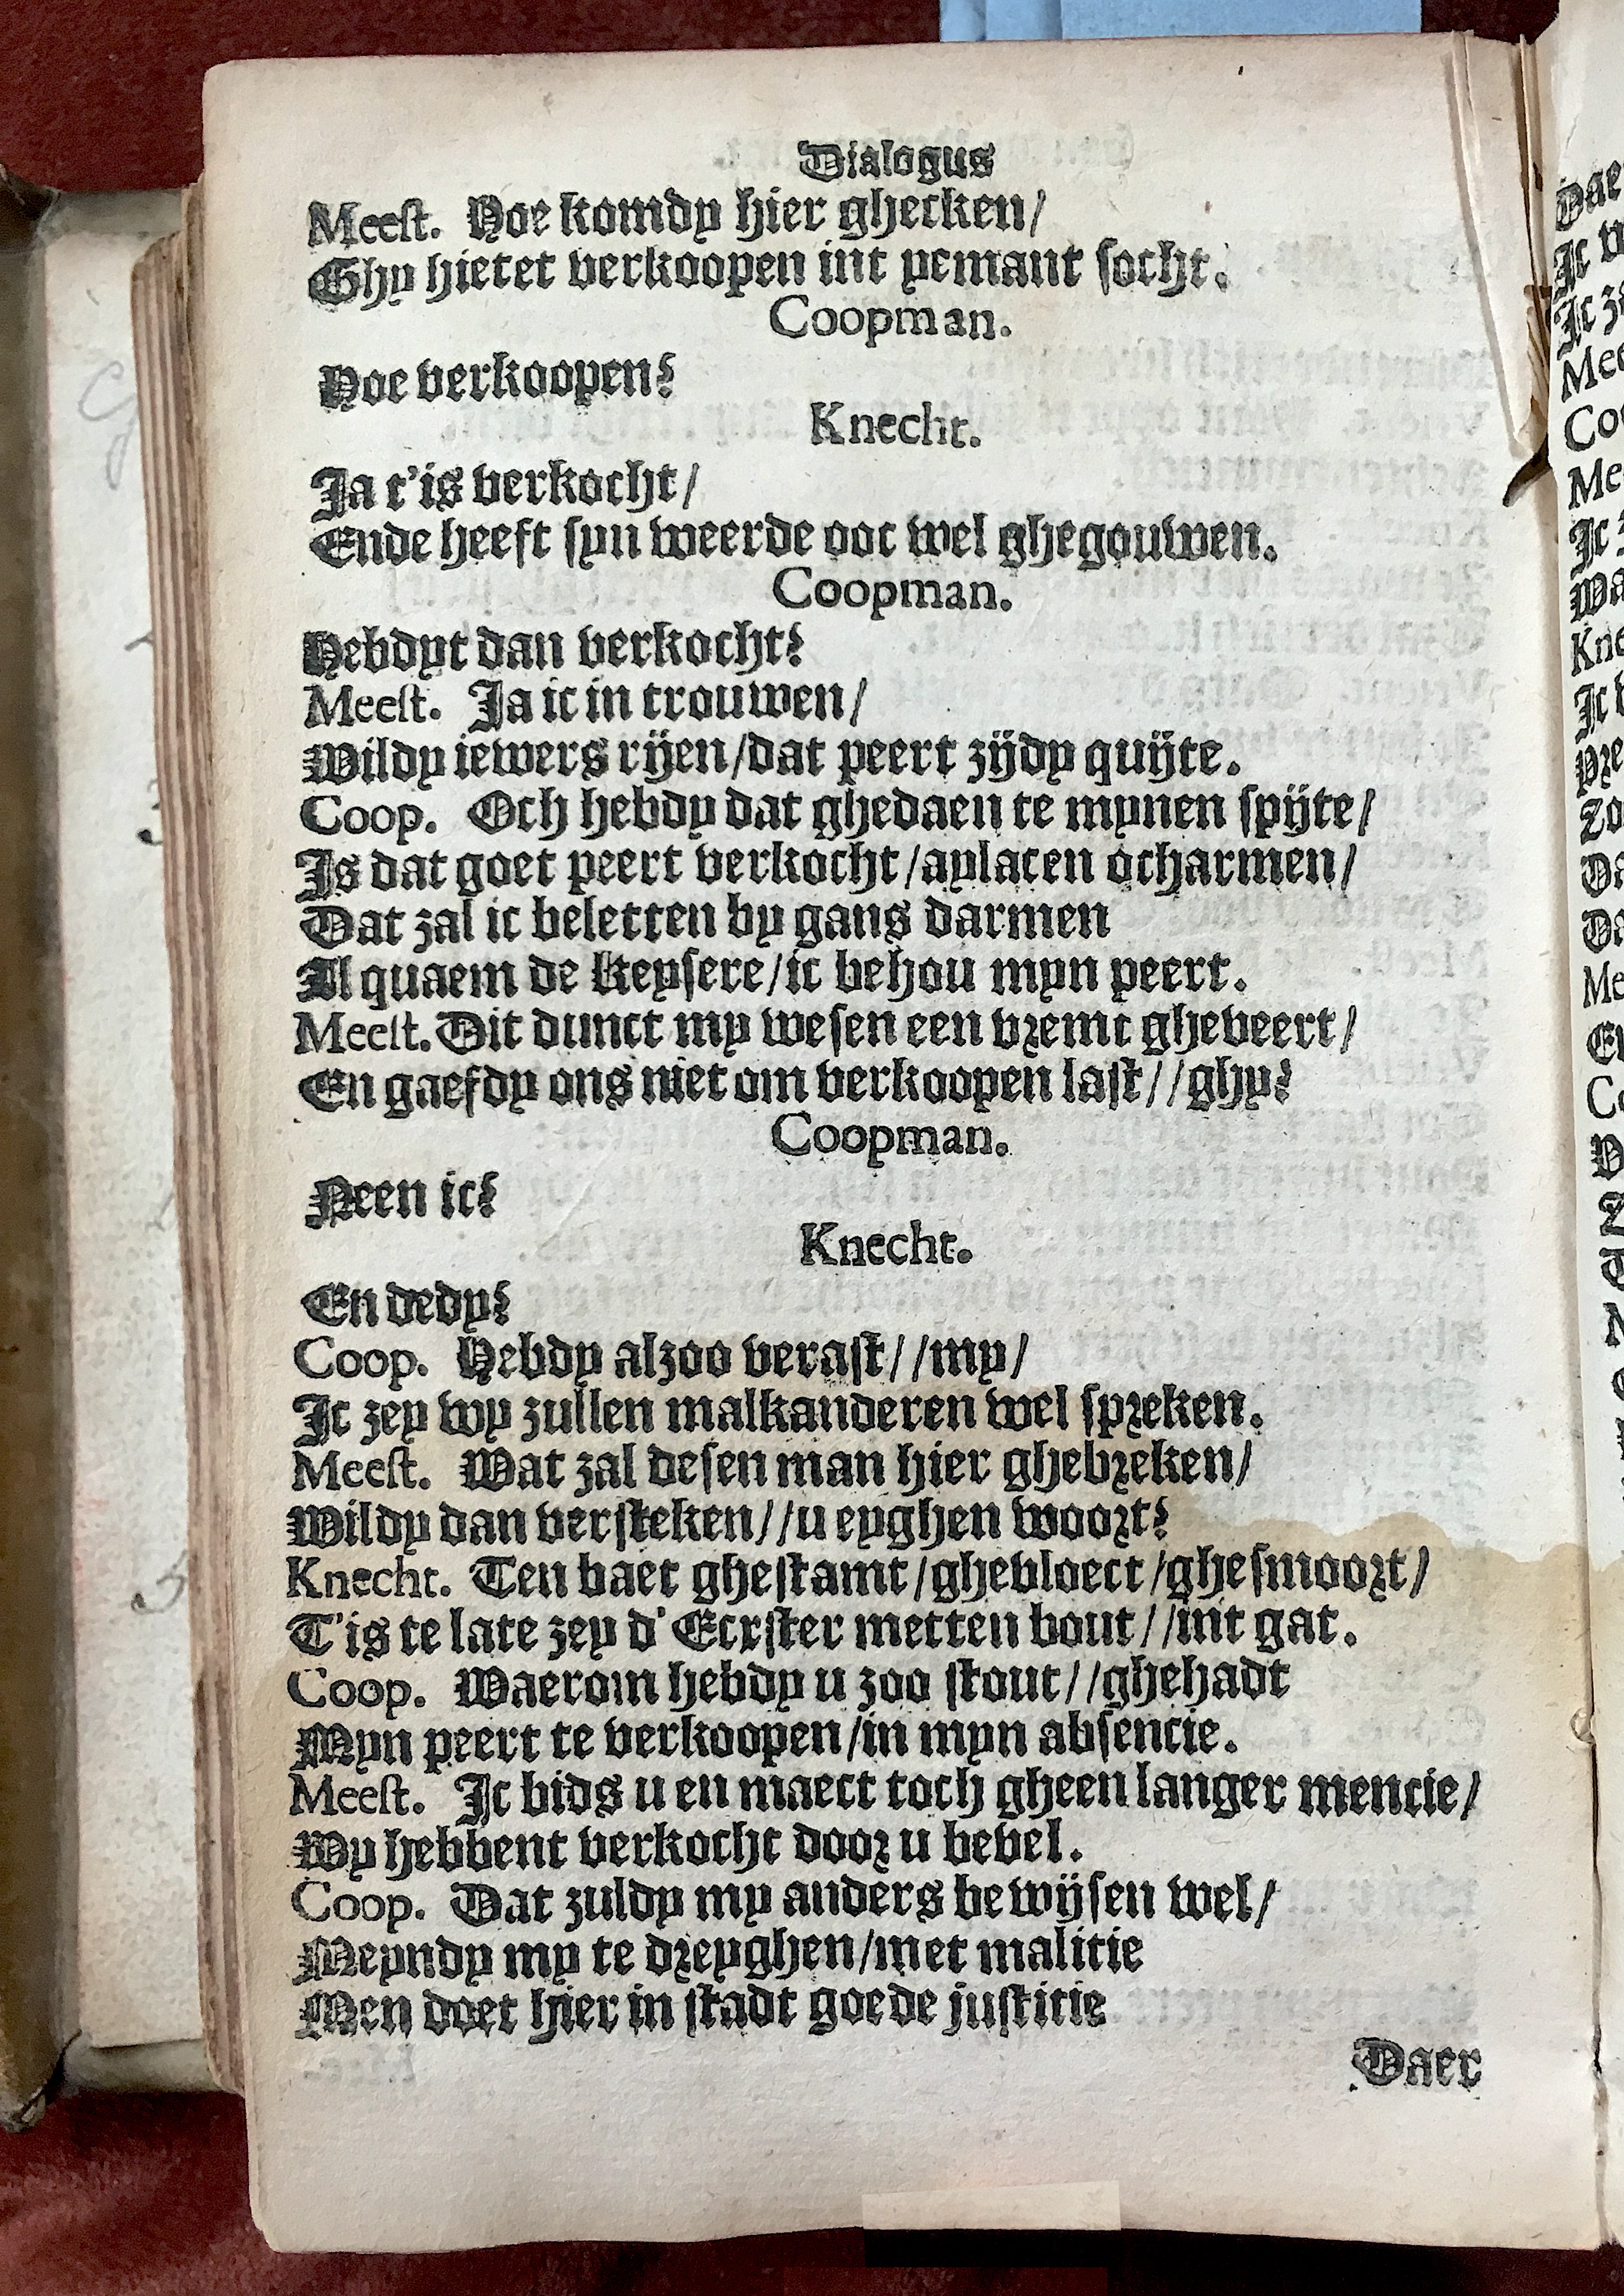 Dialogus
Meest. Hoe komdy hier ghecken/
Ghy hietet verkoopen int yemant socht.
Coopman.
Hoe verkoopen?
Knecht.
Ja t'is verkocht/
Ende heeft syn weerde ooc wel ghegouwen.
Coopman.
Hebdyt dan verkocht?
Meest. Ja ic in trouwen/
Wildy iewers rijen/dat peert zijdy quijte.
Coop. Och hebdy dat ghedaen te mynen spijte/
Is dat goet peert verkocht/aylacen ocharmen/
Dat zal ic beletten by gans darmen
Al quaem de keysere/ic behou myn peert.
Meest. Dit dunct my wesen een vremt ghebeert/
En gaefdy ons niet om verkoopen last//ghy?
Coopman.
Neen ic?
Knecht.
En dedy?
Coop. Hebdy alzoo verast//my/
Ic zey wy zullen malkanderen wel spreken.
Meest. Wat zal desen man hier ghebreken/
Wildy dan versteken//u eyghen woort?
Knecht. Ten baet ghestamt/ghevloect/ghesmoort/
T'is te late zey d'Ecxster metten bout//int gat.
Coop. Waerom hebdy u zoo stout//ghehadt
Myn peert te verkoopen/in myn absencie.
Meest. Ic bids u en maect toch gheen langer mencie/
Wy hebbent verkocht door u bevel.
Coop. Dat zuldy my anders bewijsen wel/
Meyndy my te dreyghen/met malitie
Men doet hier in stadt goede justitie
Daer